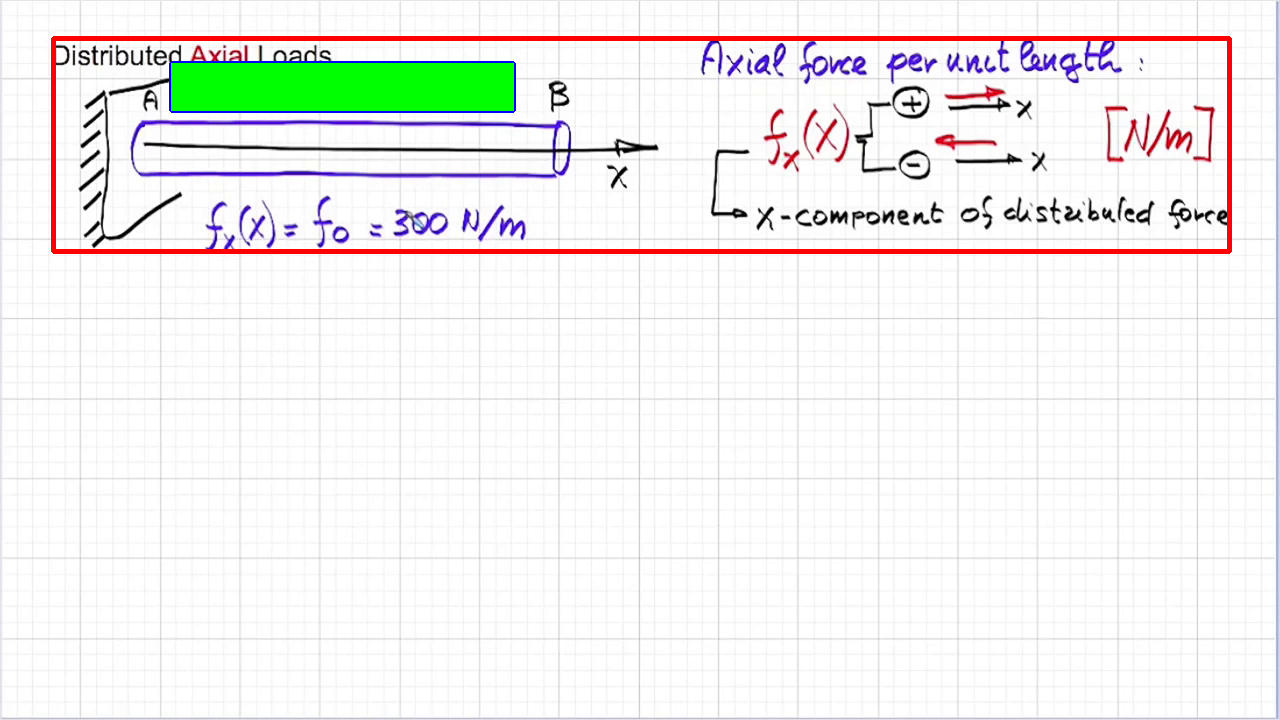 Distributed Axial Loads
A
B
x
fx(x) = f0 = 300 N/m
Axial force per unit length :
fx(x)
+
x
[N/m]
-
x
x-component of distributed force